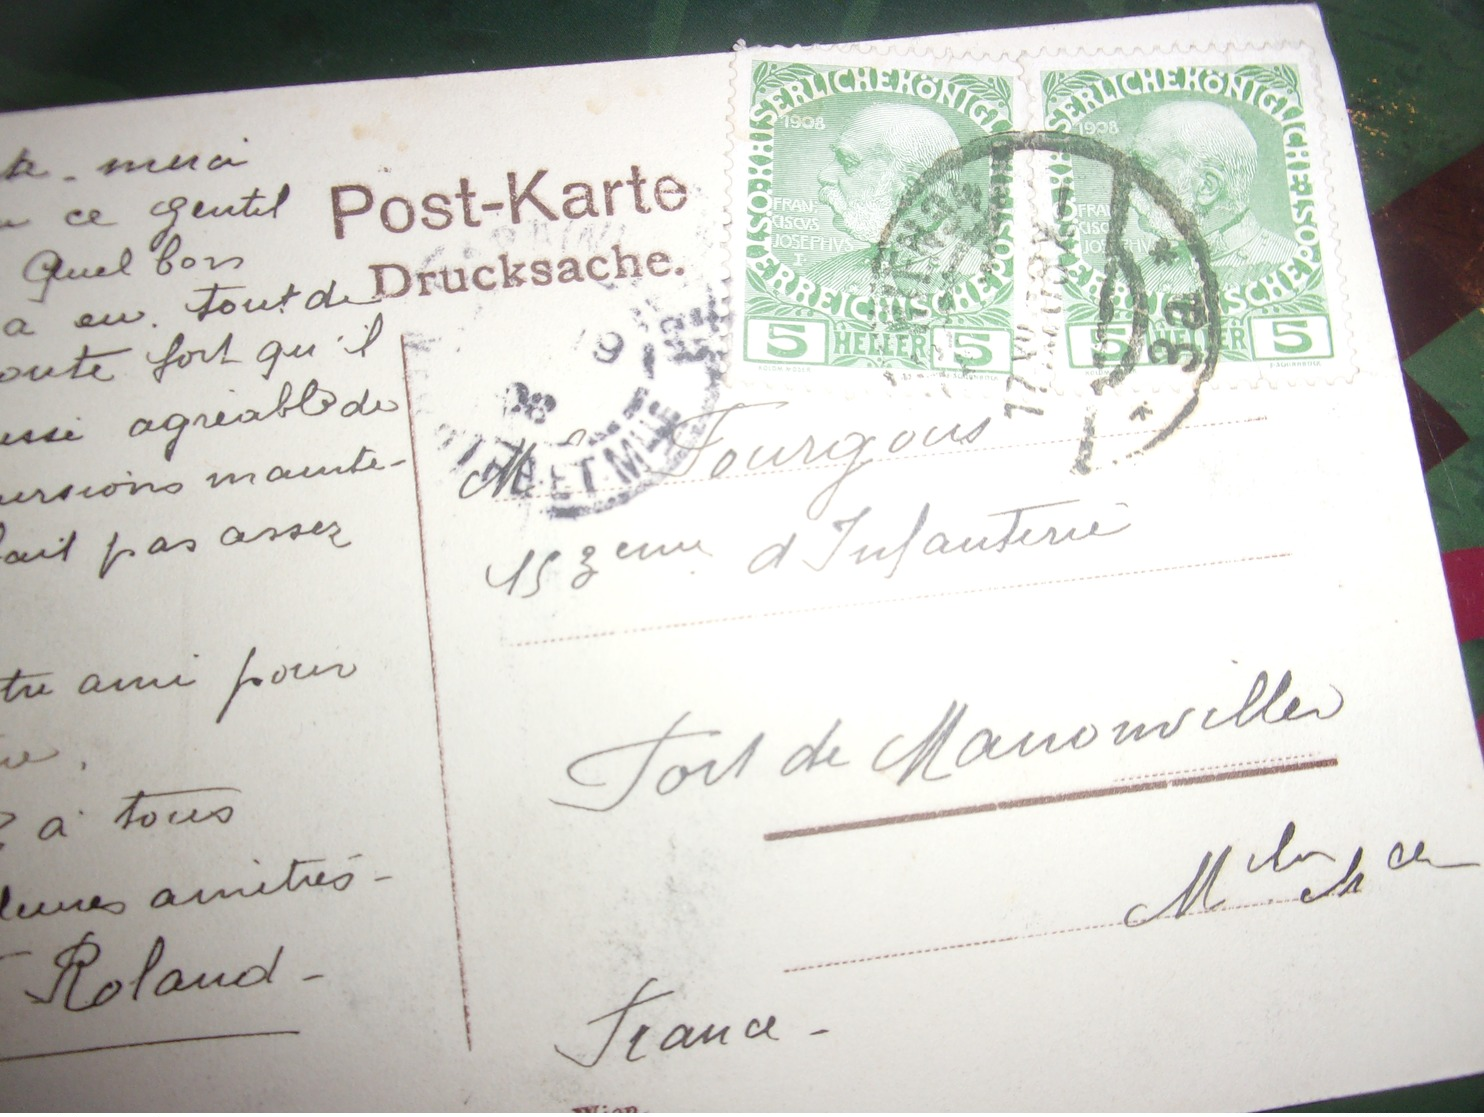 merci
ce gentil
Quel bon
a eu. tout de
fort qu'il
agréable de
mainte-
pas assez
ami pour
à tous
amitiés -
Roland -
Post-Karte
Drucksache.
KAISERLICHE KÖNIGLICHE ÖSTERREICHISCHE POST
1908
FRAN-
CISCVS
JOSEPHVS
I
5 HELLER 5
KAISERLICHE KÖNIGLICHE ÖSTERREICHISCHE POST
1908
FRAN-
CISCVS
JOSEPHVS
I
5 HELLER 5
WIEN
3a
ET-MLLE
Fourgous
153eme d'Infanterie
Fort de Manonviller
France -
Wien.